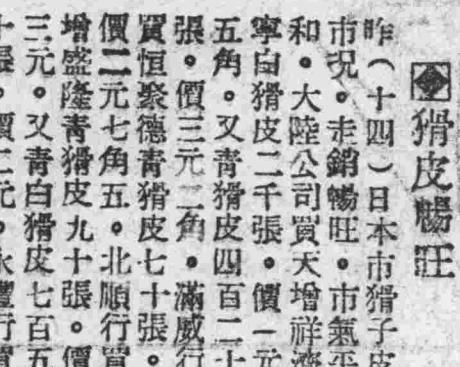 猾皮暢旺
昨(十四)日本市猾子皮
市况。走銷暢旺。市氣平
和。大陸公司買天增祥濟
寧白猾皮二千張。價一元
五角。又靑猾皮四百二十
張。價三元二角。滿威行
買恒聚德靑猾皮七十張。
價二元七角五。北順行買
增盛隆靑猾皮九十張。價
三元。又靑白猾皮七百五
十張。價二元。永豐行買